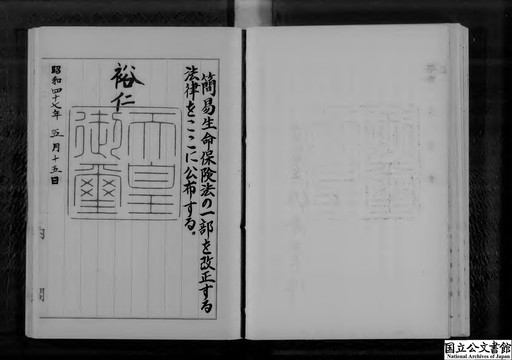 簡易生命保険法の一部を改正する
法律をここに公布する。
裕仁
天皇
御璽
昭和四十七年 五月十五日
国立公文書館
National Archives of Japan